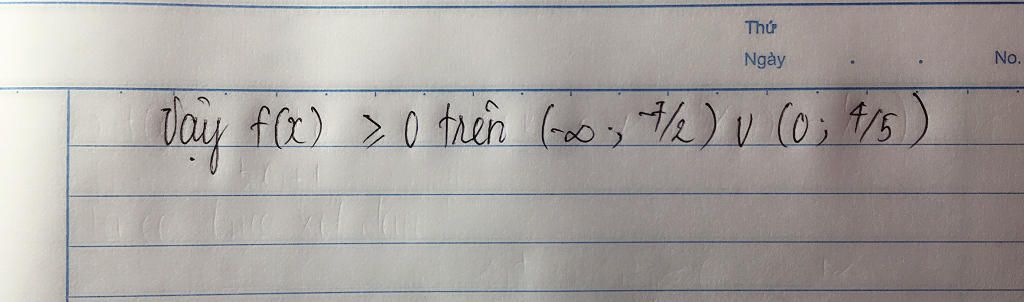 Thứ
Ngày . . No.
Vậy f(x) ≥ 0 trên (-∞; -7/2) ∪ (0; 4/5)